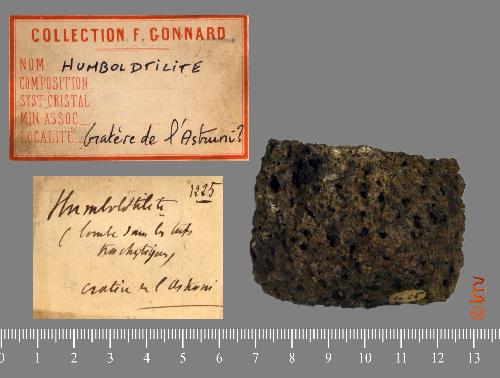 COLLECTION F. GONNARD
NOM HUMBOLDTILITE
COMPOSITION
SYST-CRISTAL
MIN ASSOC
LOCALITÉ Cratère de l'Astruni?
1225
Humboldtilite
(bombe dans les tufs
trachytiques)
cratère de l'Astruni
0 1 2 3 4 5 6 7 8 9 10 11 12 13